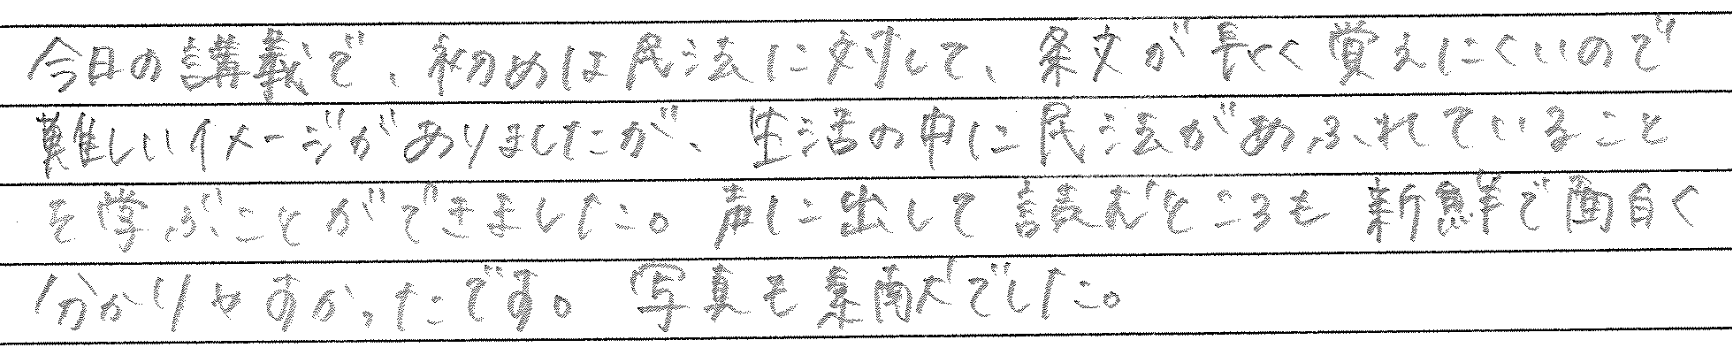 今日の講義で、初めは民法に対して、条文が長く覚えにくいので
難しいイメージがありましたが、生活の中に民法があふれていること
を学ぶことができました。声に出して読むところも新鮮で面白く
分かりやすかったです。写真も素敵でした。